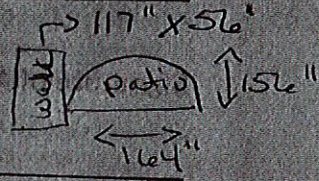 117" x 56"
walk
patio
156"
164"